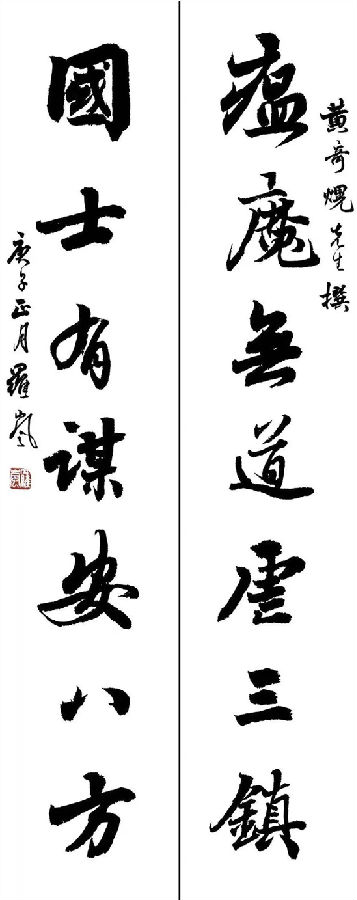 黄奇熀先生撰
瘟魔無道虐三鎮
國士有謀安八方
庚子正月羅嵐